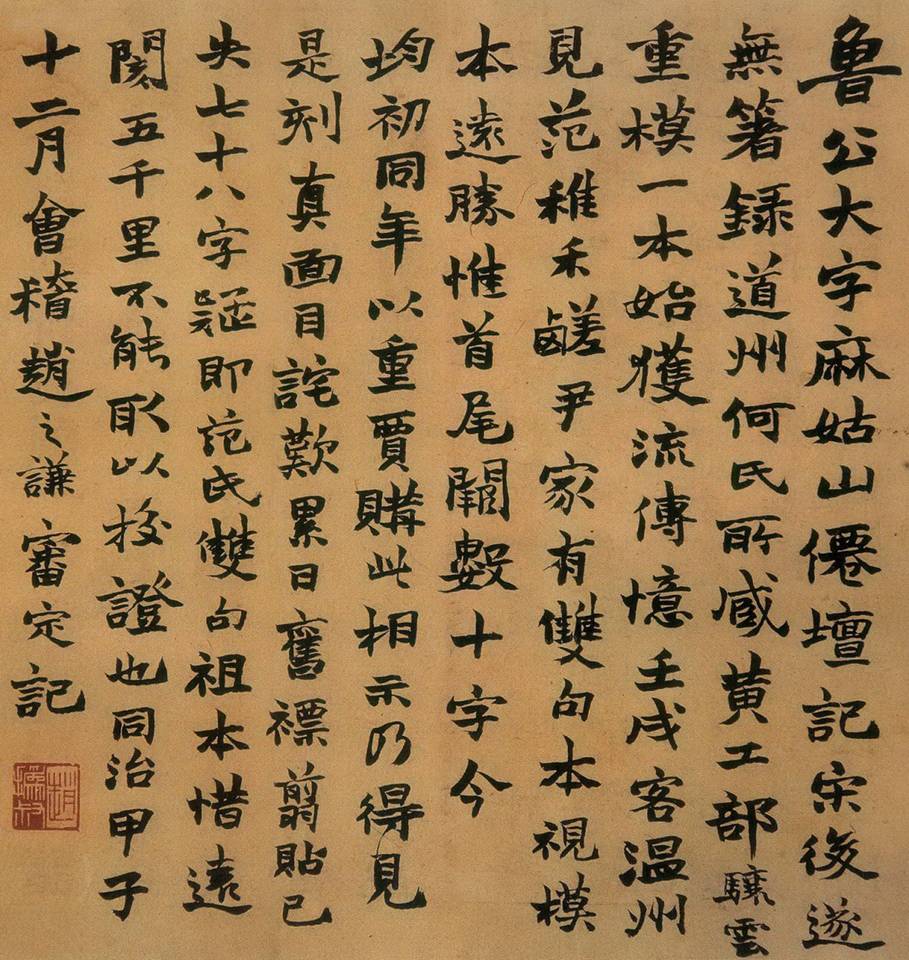 魯公大字麻姑山僊壇記宋後遂
無箸録道州何氏所臧黄工部驤雲
重橅一本始獲流傳憶壬戌客温州
見范稚禾鹺尹家有雙句本視橅
本遠勝惟首尾闕數十字今
均初同年以重賈購此相示乃得見
是刻真面目詫歎累日舊褾翦貼已
失七十八字疑即范氏雙句祖本惜遠
閡五千里不能取以挍證也同治甲子
十二月會稽趙之謙審定記
趙撝叔